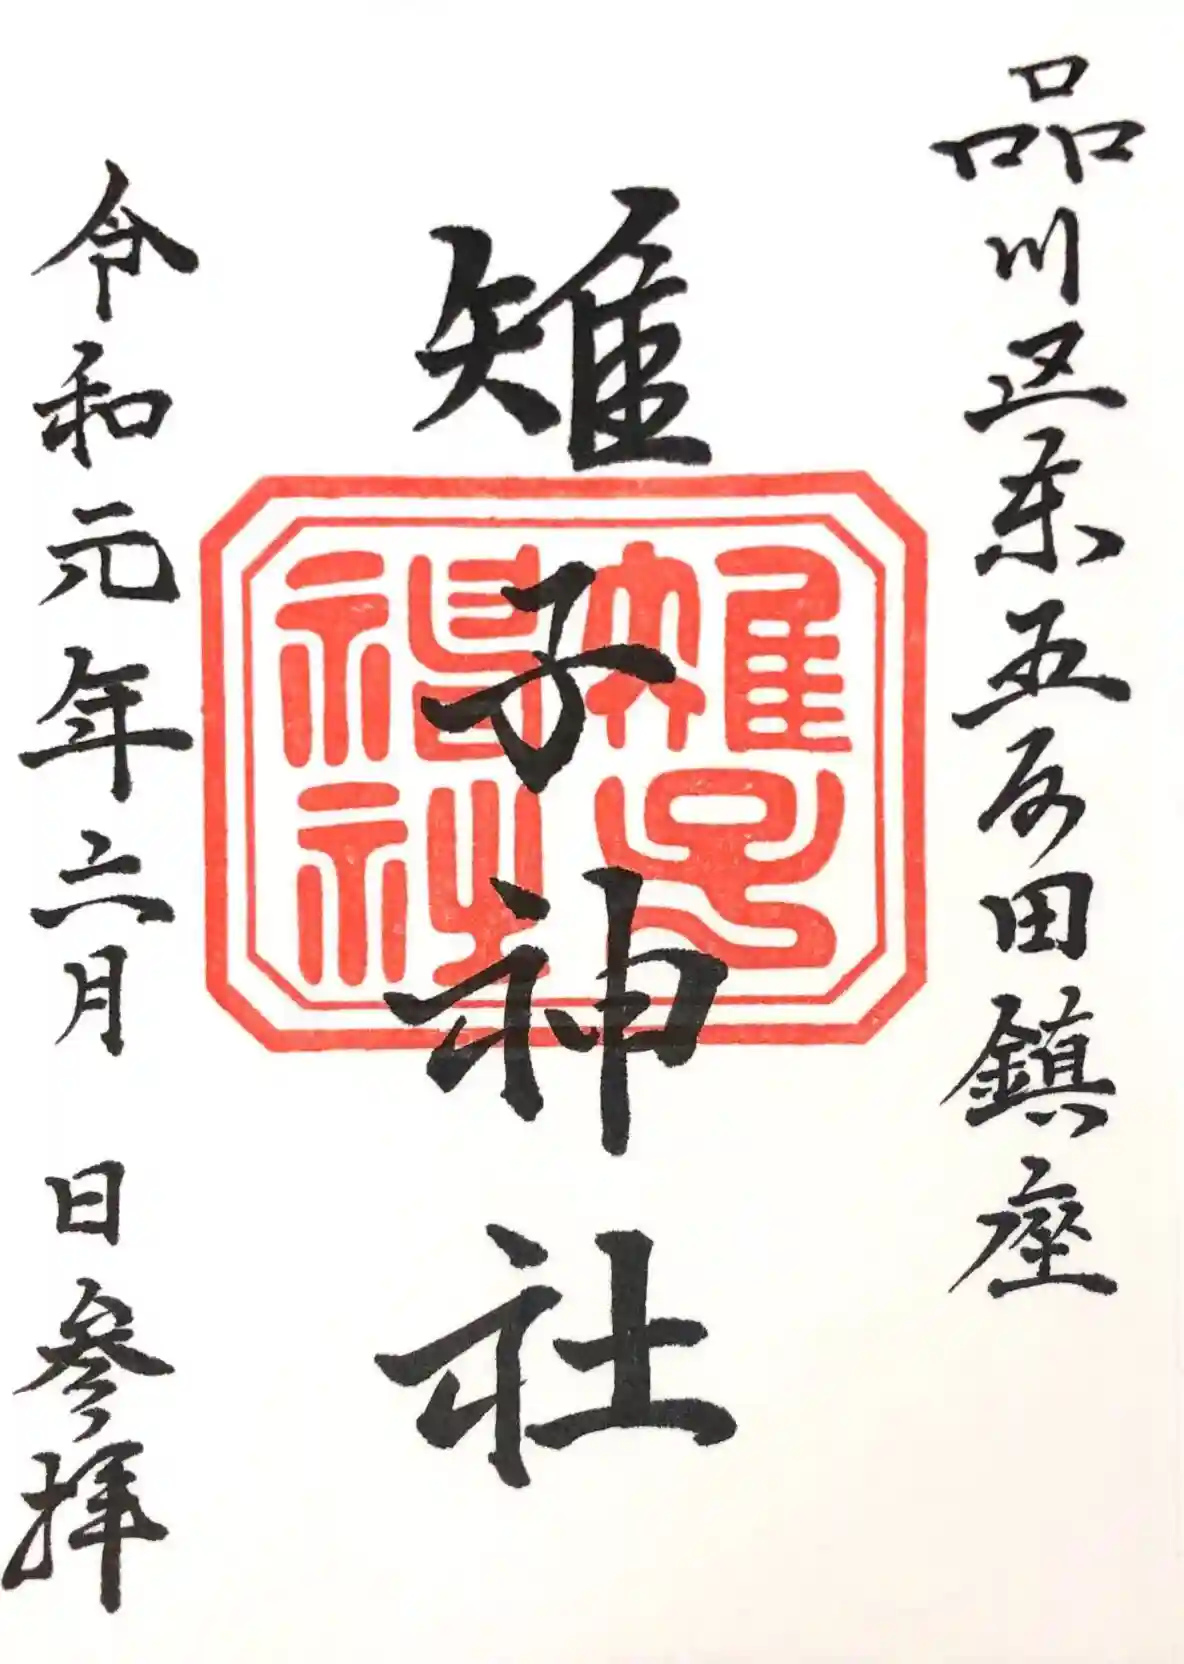 品川区東五反田鎮座
雉子神社
雉子神社
令和元年六月 日参拝